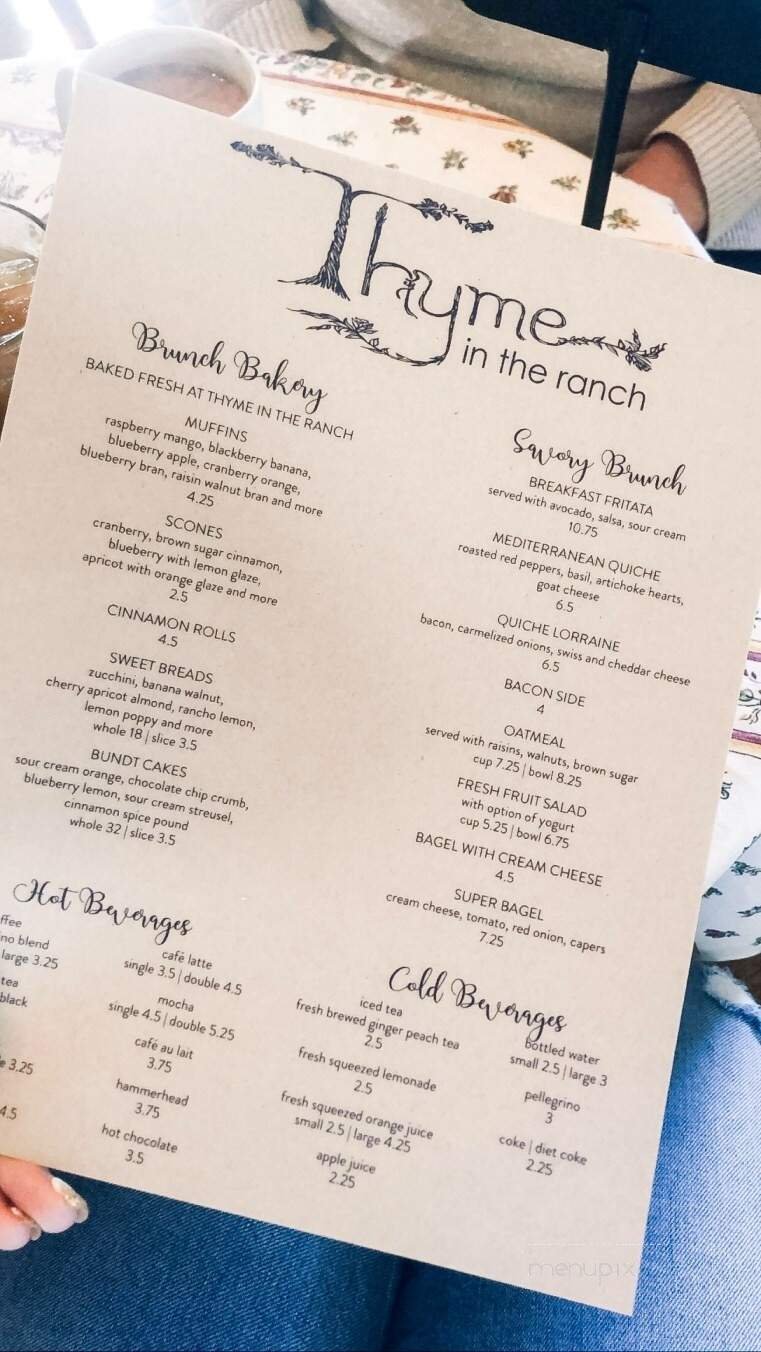 Thyme
in the ranch
Brunch Bakery
BAKED FRESH AT THYME IN THE RANCH
MUFFINS
raspberry mango, blackberry banana,
blueberry apple, cranberry orange,
blueberry bran, raisin walnut bran and more
4.25
SCONES
cranberry, brown sugar cinnamon,
blueberry with lemon glaze,
apricot with orange glaze and more
2.5
CINNAMON ROLLS
4.5
SWEET BREADS
zucchini, banana walnut,
cherry apricot almond, rancho lemon,
lemon poppy and more
whole 18 | slice 3.5
BUNDT CAKES
sour cream orange, chocolate chip crumb,
blueberry lemon, sour cream streusel,
cinnamon spice pound
whole 32 | slice 3.5
Savory Brunch
BREAKFAST FRITATA
served with avocado, salsa, sour cream
10.75
MEDITERRANEAN QUICHE
roasted red peppers, basil, artichoke hearts,
goat cheese
6.5
QUICHE LORRAINE
bacon, carmelized onions, swiss and cheddar cheese
6.5
BACON SIDE
4
OATMEAL
served with raisins, walnuts, brown sugar
cup 7.25 | bowl 8.25
FRESH FRUIT SALAD
with option of yogurt
cup 5.25 | bowl 6.75
BAGEL WITH CREAM CHEESE
4.5
SUPER BAGEL
cream cheese, tomato, red onion, capers
7.25
Hot Beverages
ffee
no blend
large 3.25
tea
black
e 3.25
4.5
café latte
single 3.5 | double 4.5
mocha
single 4.5 | double 5.25
café au lait
3.75
hammerhead
3.75
hot chocolate
3.5
Cold Beverages
iced tea
fresh brewed ginger peach tea
2.5
fresh squeezed lemonade
2.5
fresh squeezed orange juice
small 2.5 | large 4.25
apple juice
2.25
bottled water
small 2.5 | large 3
pellegrino
3
coke | diet coke
2.25
menupix